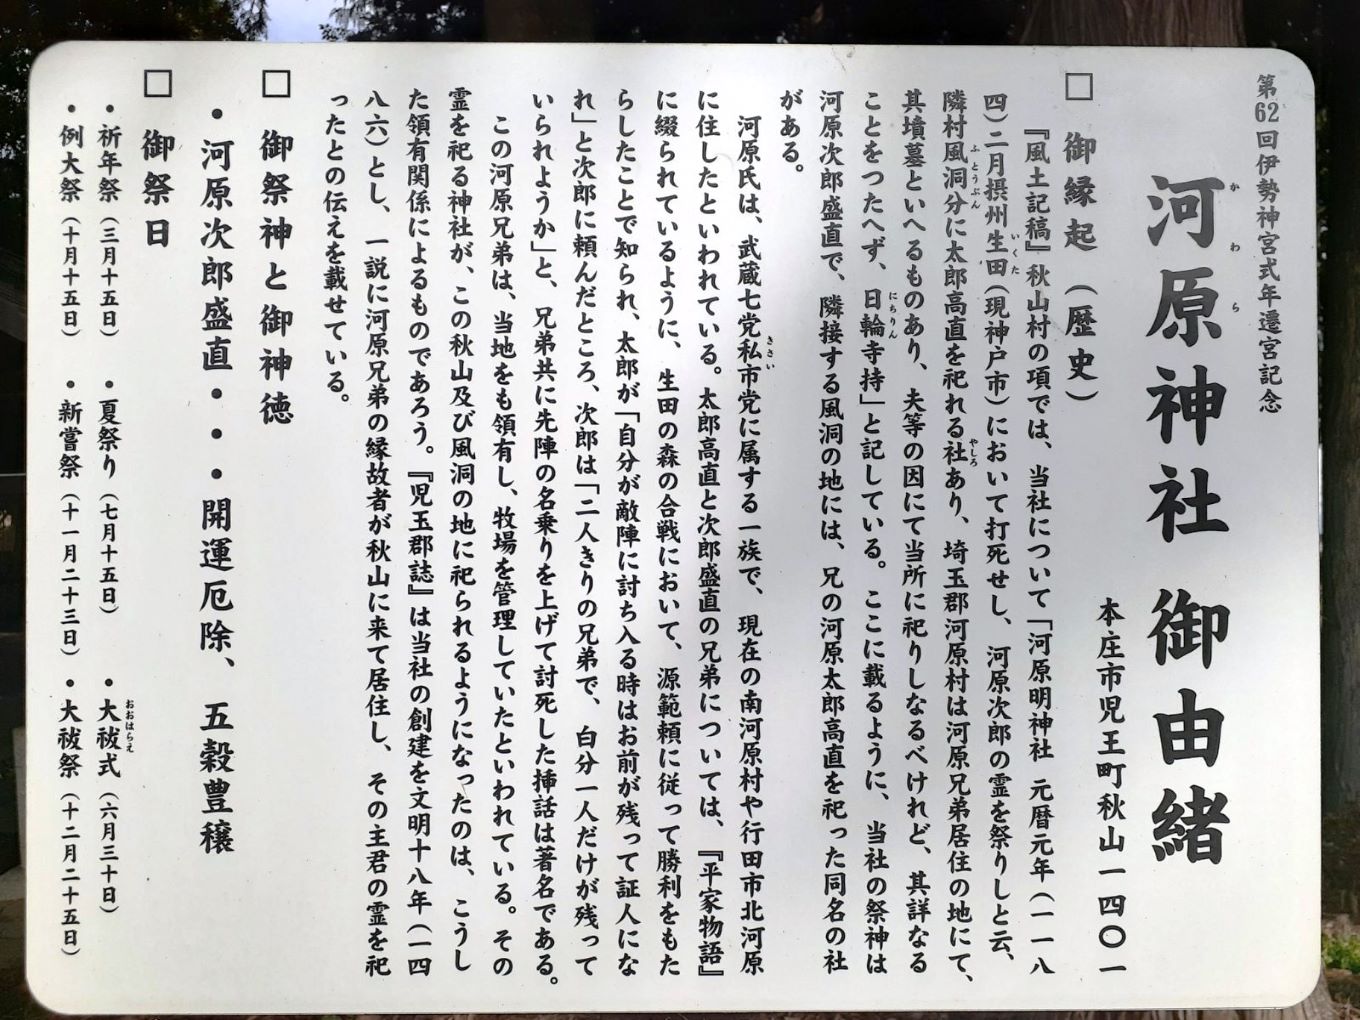 第62回伊勢神宮式年遷宮記念
河原神社 御由緒
かわら
本庄市児玉町秋山一四〇一
□ 御縁起（歴史）
『風土記稿』秋山村の項では、当社について「河原明神社 元暦元年（一一八
四）二月摂州生田（現神戸市）において打死せし、河原次郎の霊を祭りしと云、
いくた
隣村風洞分に太郎高直を祀れる社あり、埼玉郡河原村は河原兄弟居住の地にて、
ふとうぶん
やしろ
其墳墓といへるものあり、夫等の因にて当所に祀りしなるべけれど、其詳なる
ことをつたへず、日輪寺持」と記している。ここに載るように、当社の祭神は
にちりん
河原次郎盛直で、隣接する風洞の地には、兄の河原太郎高直を祀った同名の社
がある。
河原氏は、武蔵七党私市党に属する一族で、現在の南河原村や行田市北河原
きさい
に住したといわれている。太郎高直と次郎盛直の兄弟については、『平家物語』
に綴られているように、生田の森の合戦において、源範頼に従って勝利をもた
らしたことで知られ、太郎が「自分が敵陣に討ち入る時はお前が残って証人にな
れ」と次郎に頼んだところ、次郎は「二人きりの兄弟で、自分一人だけが残って
いられようか」と、兄弟共に先陣の名乗りを上げて討死した挿話は著名である。
この河原兄弟は、当地をも領有し、牧場を管理していたといわれている。その
霊を祀る神社が、この秋山及び風洞の地に祀られるようになったのは、こうし
た領有関係によるものであろう。『児玉郡誌』は当社の創建を文明十八年（一四
八六）とし、一説に河原兄弟の縁故者が秋山に来て居住し、その主君の霊を祀
ったとの伝えを載せている。
□ 御祭神と御神徳
・河原次郎盛直・・・開運厄除、五穀豊穣
□ 御祭日
・祈年祭（三月十五日） ・夏祭り（七月十五日） ・大祓式（六月三十日）
おおはらえ
・例大祭（十月十五日） ・新嘗祭（十一月二十三日） ・大祓祭（十二月二十五日）